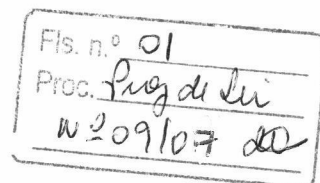 Fls. n.º 01
Proc. Proj de Lei
Nº 09/07